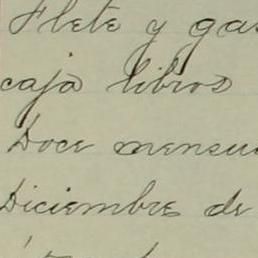 Flete y gas
caja libros
Doce mensua
Diciembre de